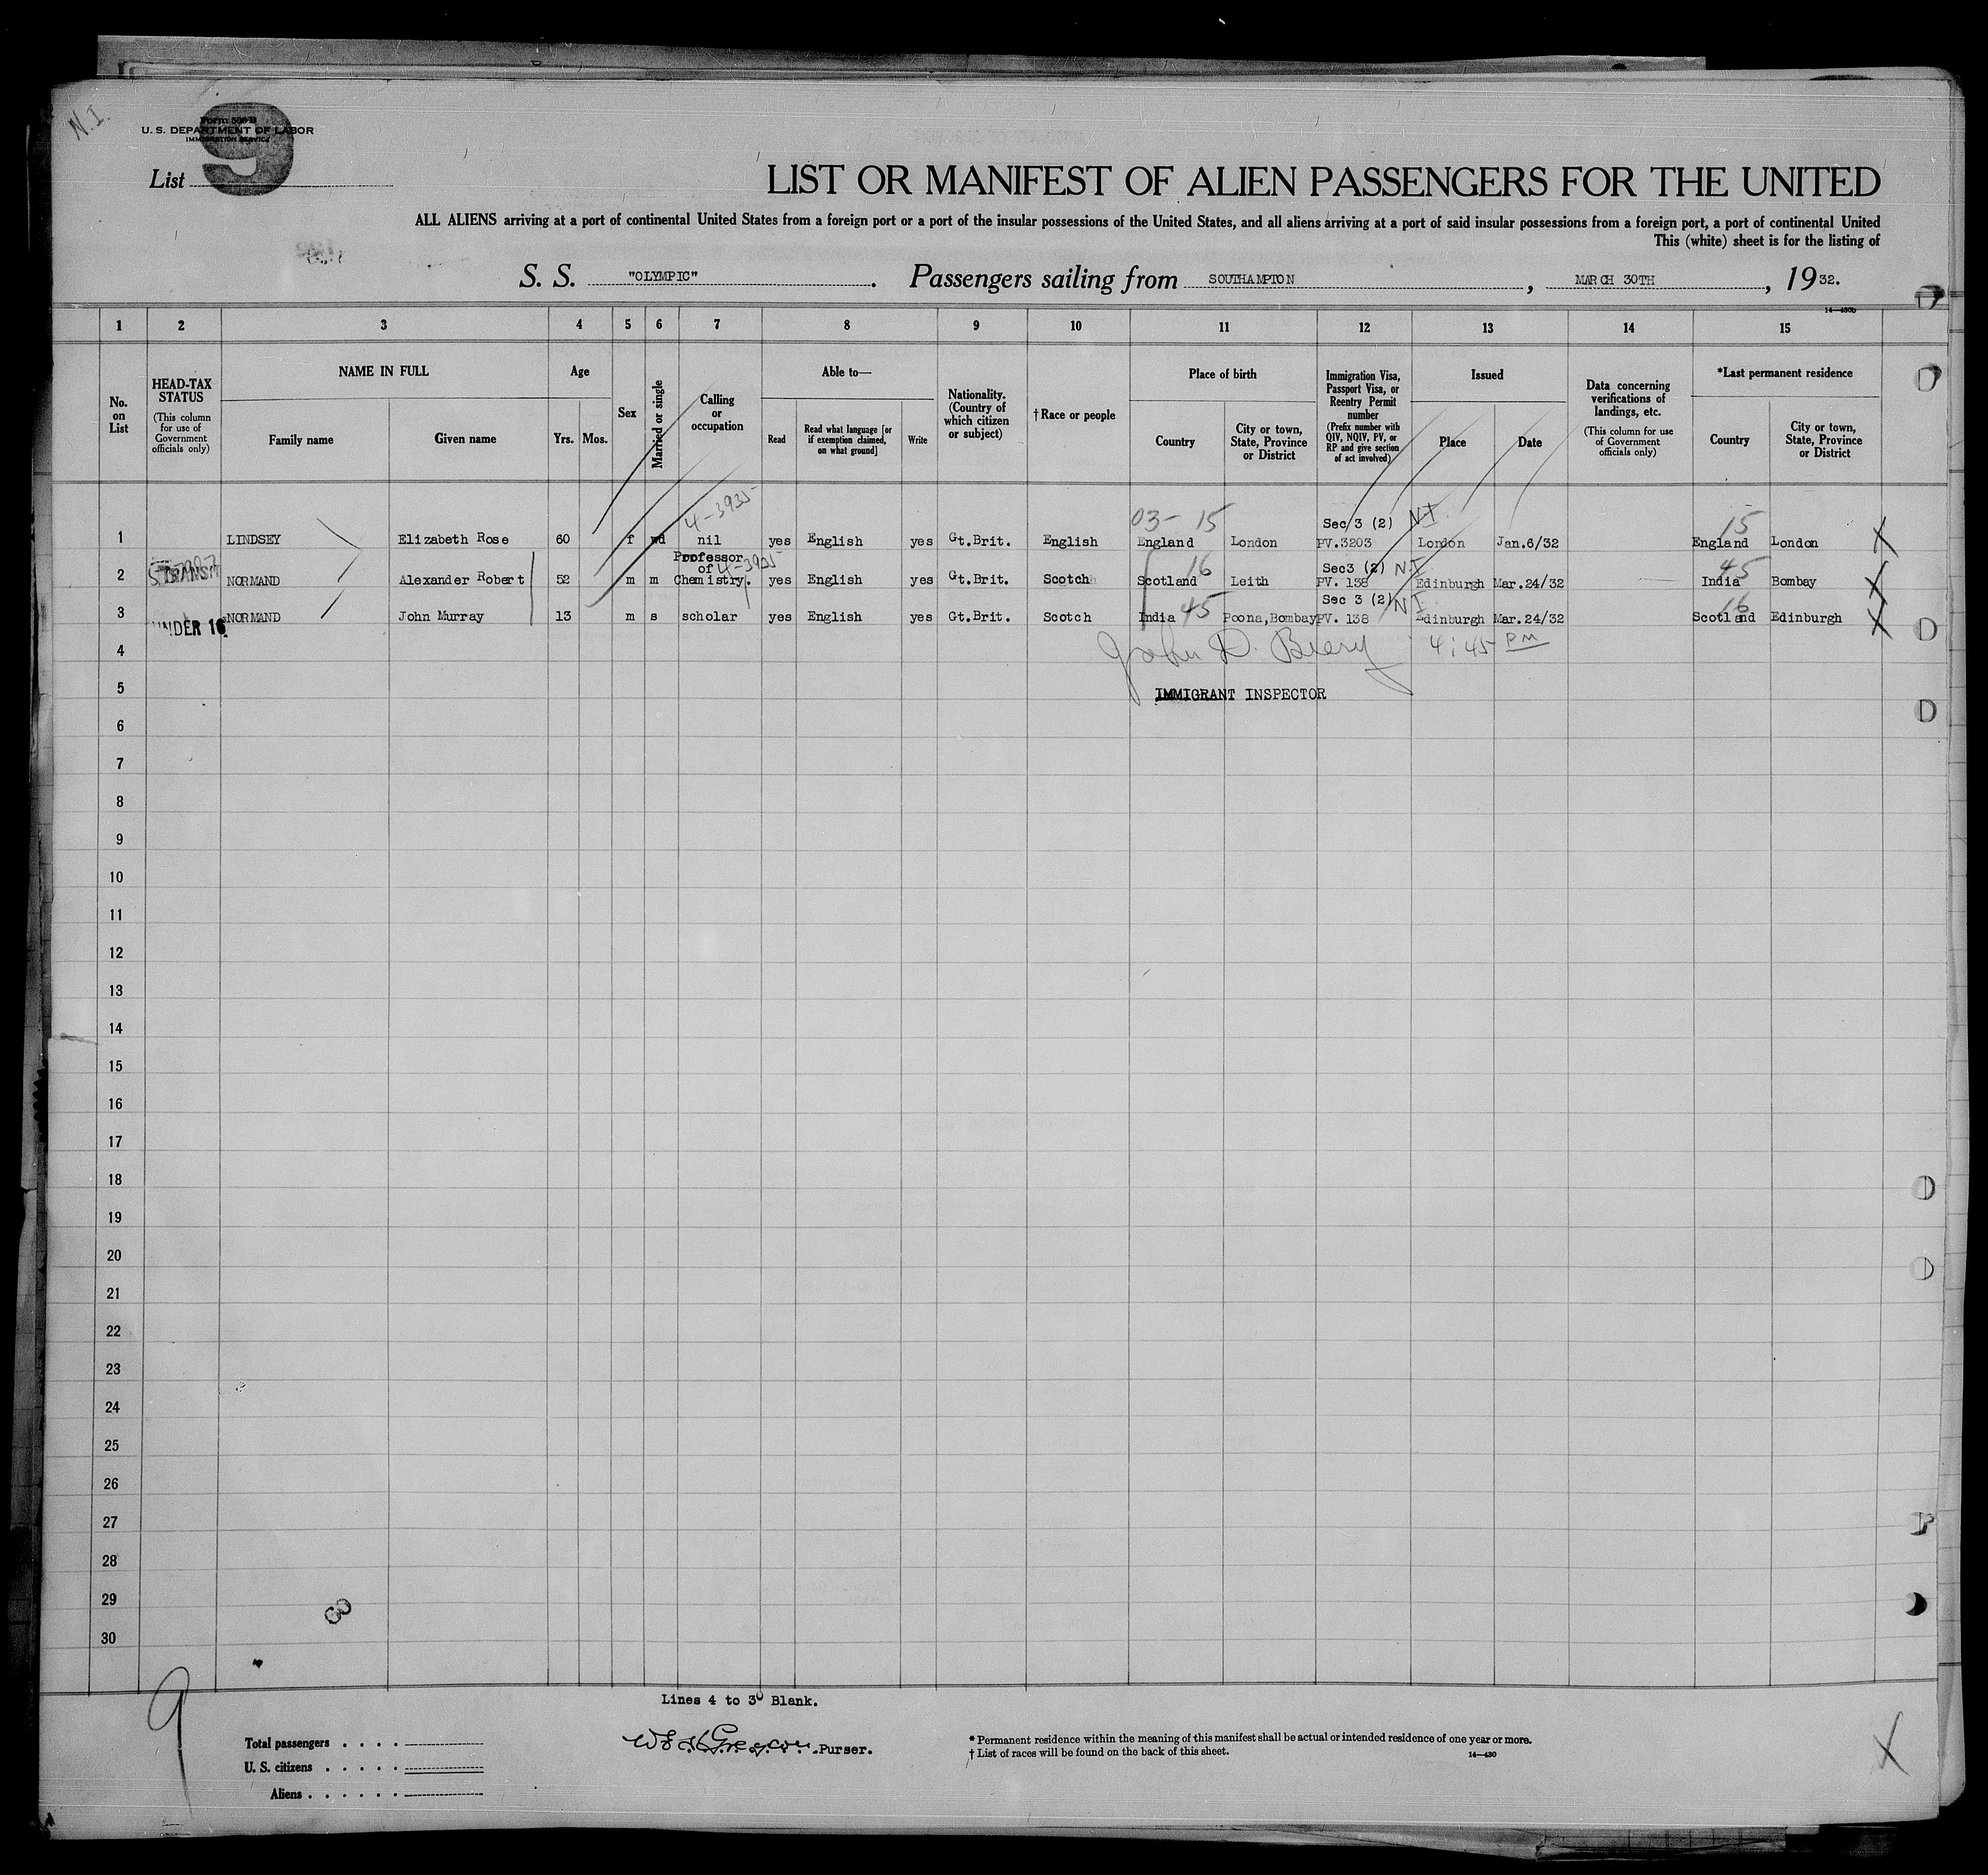 N.I.
9
Form 500 B
U. S. DEPARTMENT OF LABOR
IMMIGRATION SERVICE
List
LIST OR MANIFEST OF ALIEN PASSENGERS FOR THE UNITED
ALL ALIENS arriving at a port of continental United States from a foreign port or a port of the insular possessions of the United States, and all aliens arriving at a port of said insular possessions from a foreign port, a port of continental United
This (white) sheet is for the listing of
S. S. "OLYMPIC". Passengers sailing from SOUTHAMPTON, MARCH 30TH, 1932.
14—430b
1 2 3 4 5 6 7 8 9 10 11 12 13 14 15
No. on List
HEAD-TAX STATUS (This column for use of Government officials only)
NAME IN FULL
Family name Given name
Age
Yrs. Mos.
Sex
Married or single
Calling or occupation
Able to—
Read
Read what language [or if exemption claimed, on what ground]
Write
Nationality. (Country of which citizen or subject)
†Race or people
Place of birth
Country
City or town, State, Province or District
Immigration Visa, Passport Visa, or Reentry Permit number (Prefix number with QIV, NQIV, PV, or RP and give section of act involved)
Issued
Place Date
Data concerning verifications of landings, etc. (This column for use of Government officials only)
*Last permanent residence
Country
City or town, State, Province or District
4-3935 03- 15 Sec 3 (2) N.I. 15
1 LINDSEY Elizabeth Rose 60 f wd nil yes English yes Gt.Brit. English England London PV.3203 London Jan.6/32 England London X
Professor of 4-3935 16 Sec3 (2) N.I 45
2 TRANSIT NORMAND Alexander Robert 52 m m Chemistry. yes English yes Gt.Brit. Scotch Scotland Leith PV. 138 Edinburgh Mar.24/32 India Bombay X
45 Sec 3 (2) N I 16
3 UNDER 16 NORMAND John Murray 13 m s scholar yes English yes Gt.Brit. Scotch India Poona,Bombay PV. 138 Edinburgh Mar.24/32 Scotland Edinburgh X
4 John D. Biery 4:45 PM
5 IMMIGRANT INSPECTOR
6
7
8
9
10
11
12
13
14
15
16
17
18
19
20
21
22
23
24
25
26
27
28
29
30
9
Lines 4 to 30 Blank.
Total passengers
U. S. citizens
Aliens
Purser.
* Permanent residence within the meaning of this manifest shall be actual or intended residence of one year or more.
† List of races will be found on the back of this sheet.
14—430
X